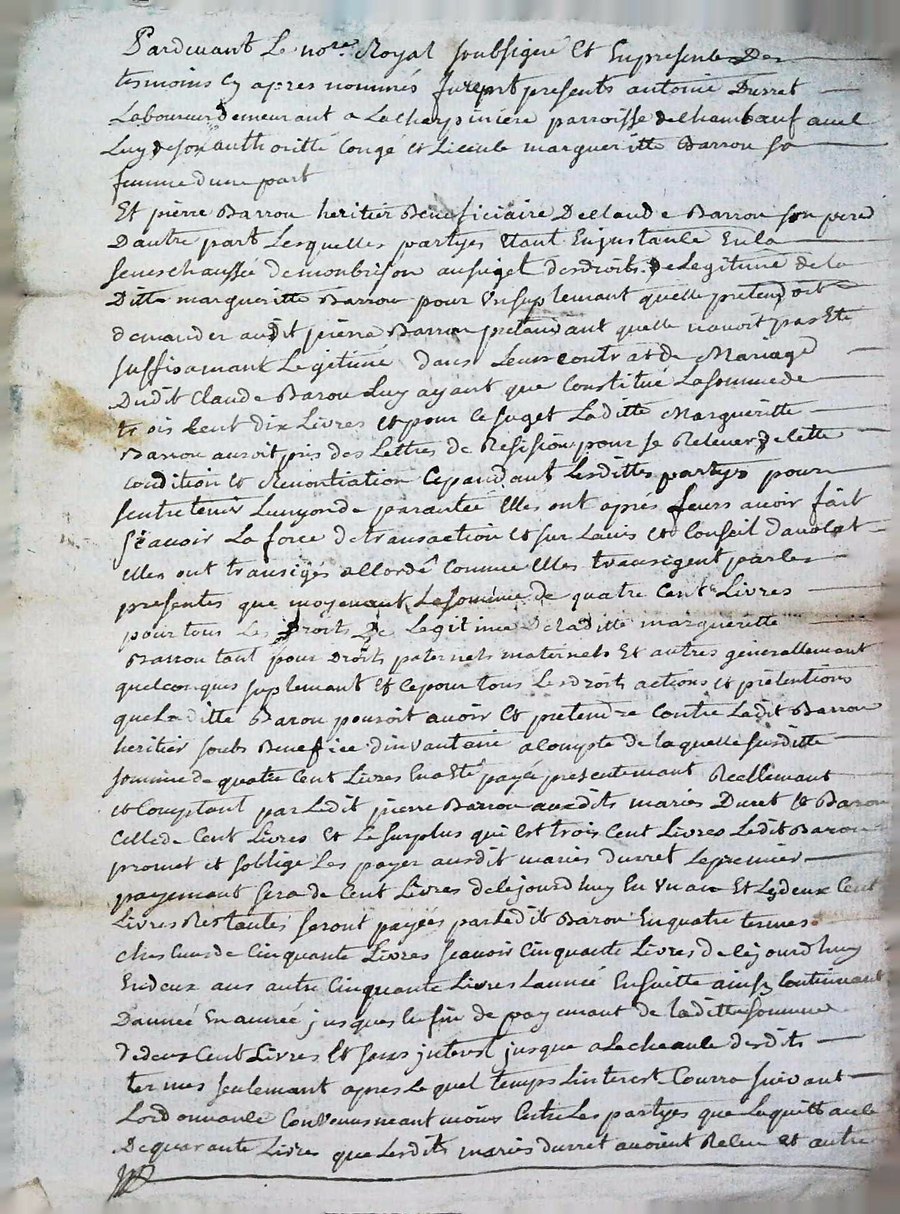 Pardevant Le no.re Royal soubsigné Et En presence Des
tesmoins Cy apres nommés furent presents antoine Durret
Laboureur demeurant a Lacharpinière parroisse de chambœuf avec
Luy de son authoritté Congé et Licence margueritte Barrou sa
femme dune part
Et pierre Barrou heritier Beneficiaire De Claude Barrou son pere
Dautre part Lesquelles partyes Etant En justance En la
seneschaussée de monbrison au suget des droits de Legitime de la
Ditte margueritte Barrou pour un suplemant quelle pretendoit
demander audit pierre Barrou pretandant quelle navoit pas Eté
suffisamant Legitimé dans Leur contrat de Mariage
Dudit Claude Barou Luy ayant que Constitué La somme de
trois Cent dix Livres et pour Ce suget Laditte Margueritte
Barrou auroit pris des Lettres de Resision pour se Relever de Cette
condition et Renontiation Cepandant Lesdittes partyes pour
sentretenir Lunyon de parantée Elles ont aprés Leurs avoir fait
sçavoir La force de transaction et sur Lavis et Conseil davocat
Elles ont transigés accordé Comme Elles transigent par les
presentes que moyenant La somme de quatre Cent Livres
pour tous Les Droits De Legitime de laditte margueritte
Barrou tant pour Droits paternels maternels Et autres generallemant
quelconques suplemant Et Ce pour tous Les droits actions et pretentions
que Laditte Barou pouroit avoir Et pretendre Contre Ledit Barrou
heritier soubs Benefice dinvantaire a Compte de laquelle susditte
somme de quatre Cent Livres En a Eté payée presentemant Reellemant
et Comptant par Ledit pierre Barrou auxdits mariés Duret et Barou
Celle de Cent Livres Et Le surplus qui Est trois Cent Livres Ledit Barou
promet et soblige Les payer ausdit mariés durret Le premier
payemant sera de Cent Livres de Cejourdhuy En un an Et Les deux Cent
Livres Restantes seront payées par Ledit Barou En quatre termes
chacuns de Cinquante Livres scavoir Cinquante Livres de Cejourdhuy
En deux ans autre Cinquante Livres Lannée Ensuitte ainsy Continuant
Dannée En année jusques En fin de payemant de laditte somme
de deux Cent Livres Et sans interest jusque a Lecheance desdits
termes seulemant apres Lequel temps Linterest Courra suivant
Lordonnance Convenus neantmoins Entre Les partyes que La quittance
De quarante Livres que Lesdits mariés durret avoient Receu et autre